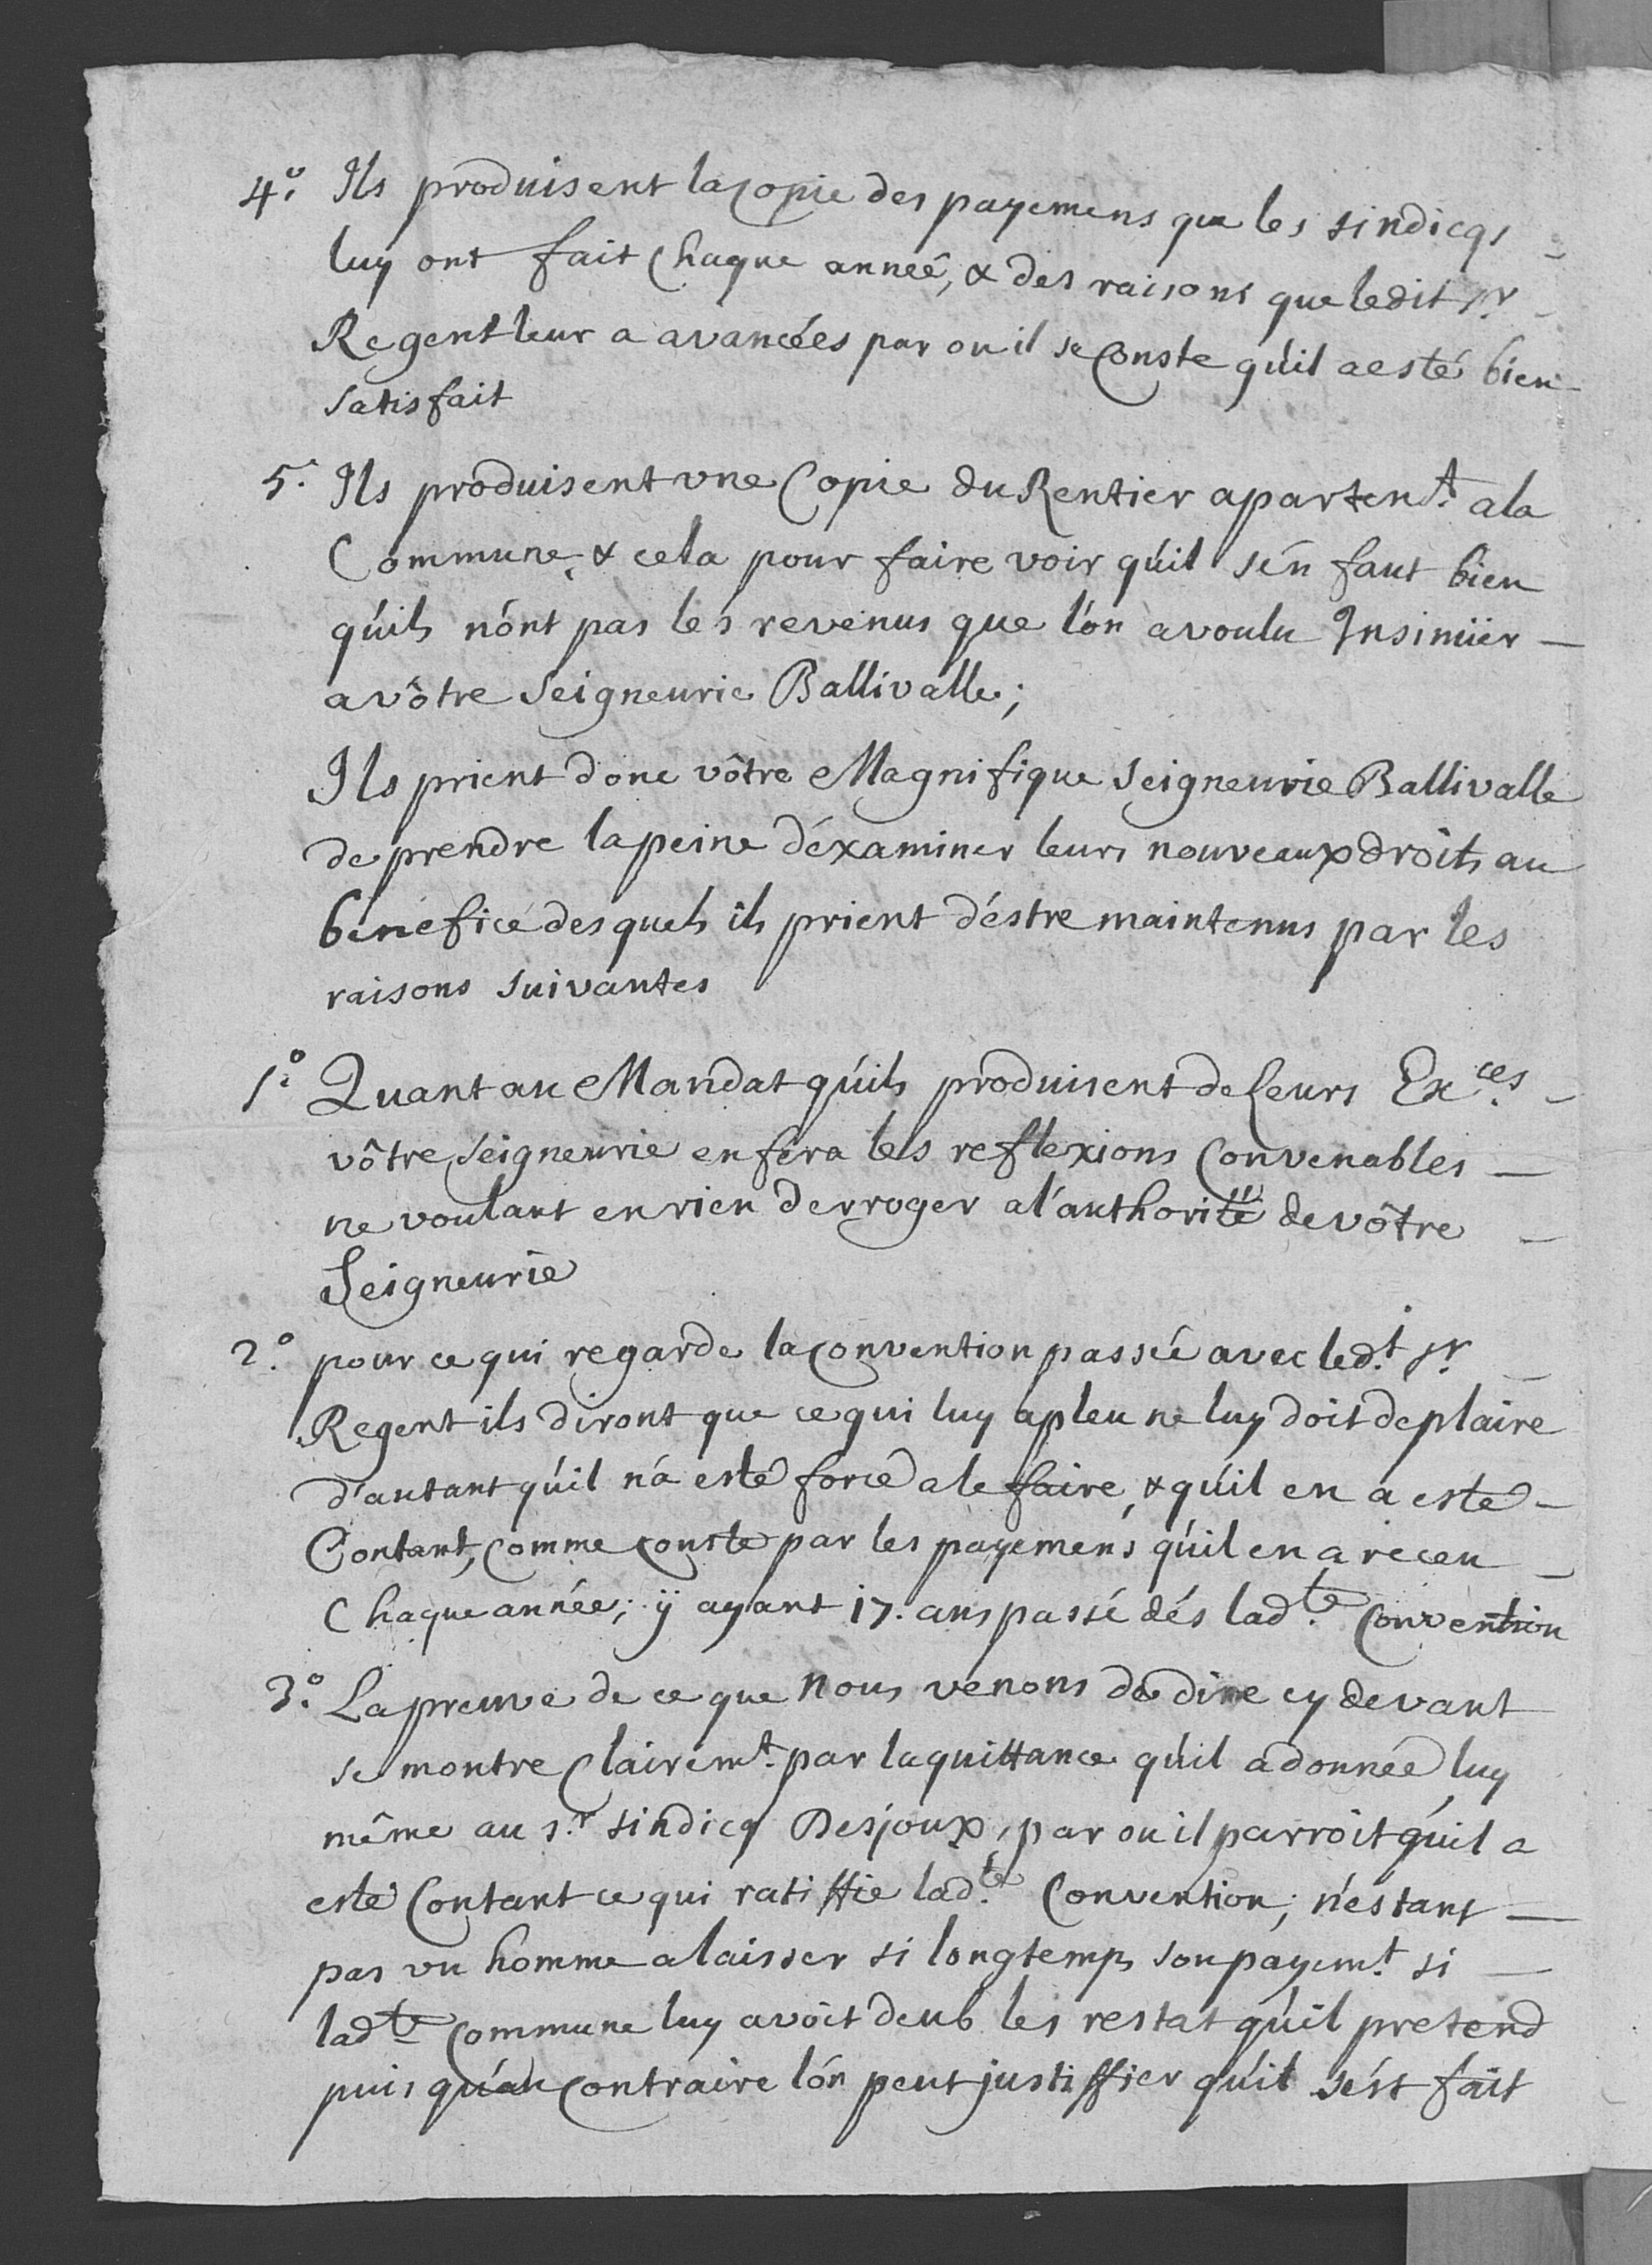 4.° Ils produisent la Copie des payemens que les sindicqs
luy ont fait Chaque anneé, & des raisons que ledit Sr.
Regent leur a avancées par ou il se Conste qúil a esté bien
satisfait
5.° Ils produisent vne Copie du Rentier apartent. a la
Commune, & cela pour faire voir qúil sén faut bien
qúils nónt pas les revenus que lón a voulu Insinüer
a vôtre Seigneurie Ballivalle;
Ils prient donc vôtre Magnifique Seigneurie Ballivalle
de prendre la peine déxaminer leurs nouveaux droits au
bénéfice desquels ils prient déstre maintenus par les
raisons suivantes
1.° Quant au Mandat qúils produisent de Leurs Exces.
vôtre Seigneurie en féra les reflexions Convenables
ne voulant en rien derroger a l'authorité de vôtre
Seigneurie
2.° pour ce qui regarde la Convention passée avec ledt. Sr.
Regent ils diront que ce qui luy a pleu ne luy doit deplaire
d'autant qúil ná esté forcé a le faire, & qúil en a esté
Contant, comme conste par les payemens qúil en a receu
Chaque année; ÿ ayant 17. ans passé dés ladte. Convention
3.° La preuve de ce que nous venons de dire cy devant
se montre Clairemt. par la quittance qúil a donnée luy
même au sr. sindicq Desjoux, par ou il parroit qúil a
esté Contant ce qui ratiffie ladte. Convention; nestant
pas vn homme a laisser si longtemps son payemt. si
ladte. Commune luy avoit deub les restat qúil pretend
puis qúau Contraire lón peut justiffier qúil sést fait